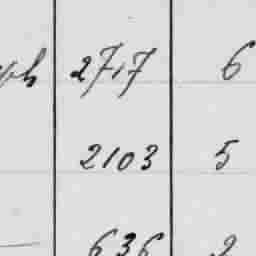 2717 6
2103 5
636 2